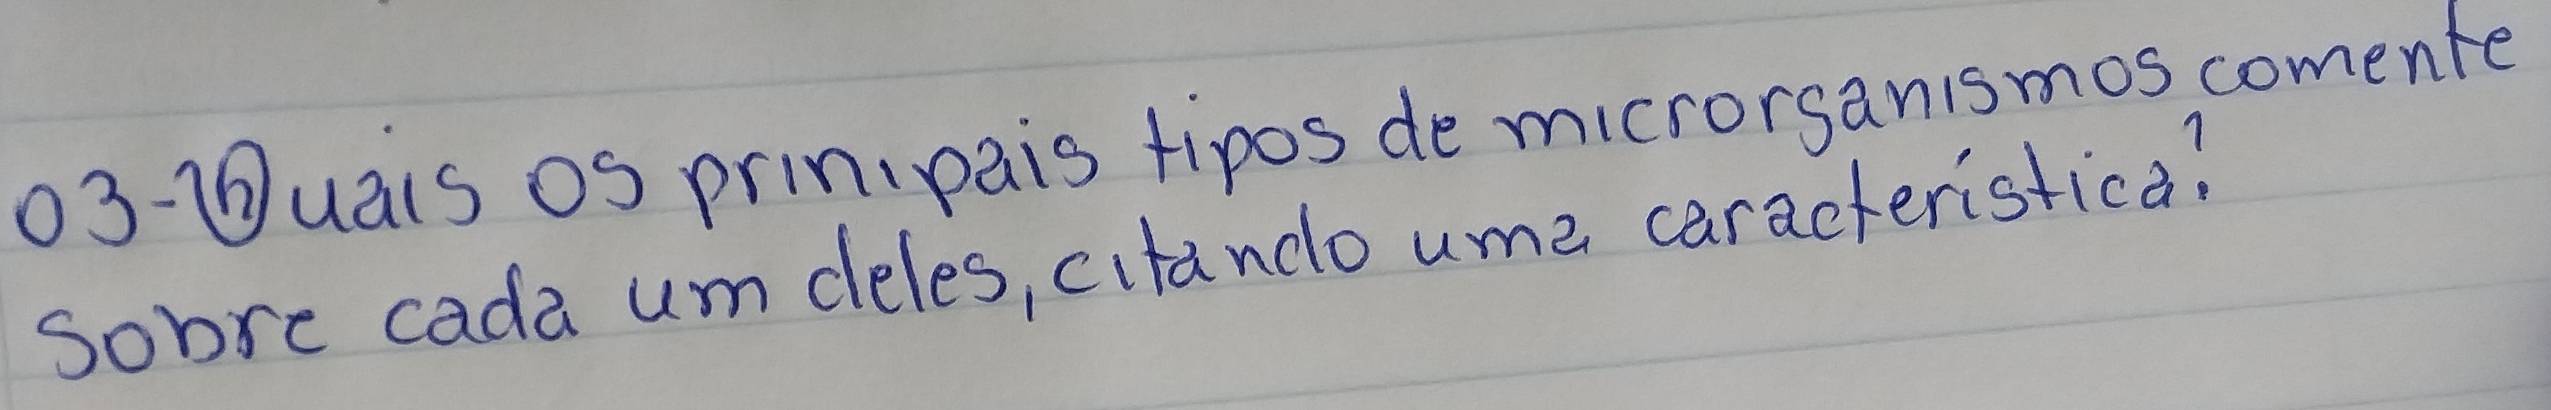 03-Quais os prinipais tipos de microrganismos comente
sobre cada um deles, citando uma característica?